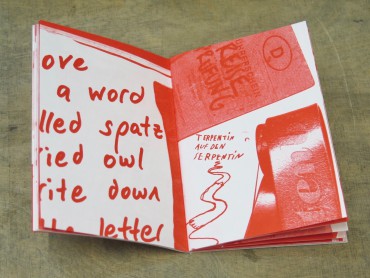 ove
a word
lled spatz
ried owl
rite down
the letter
PEINT
D
TERPENTIN
AUF DEN
SERPENTIN